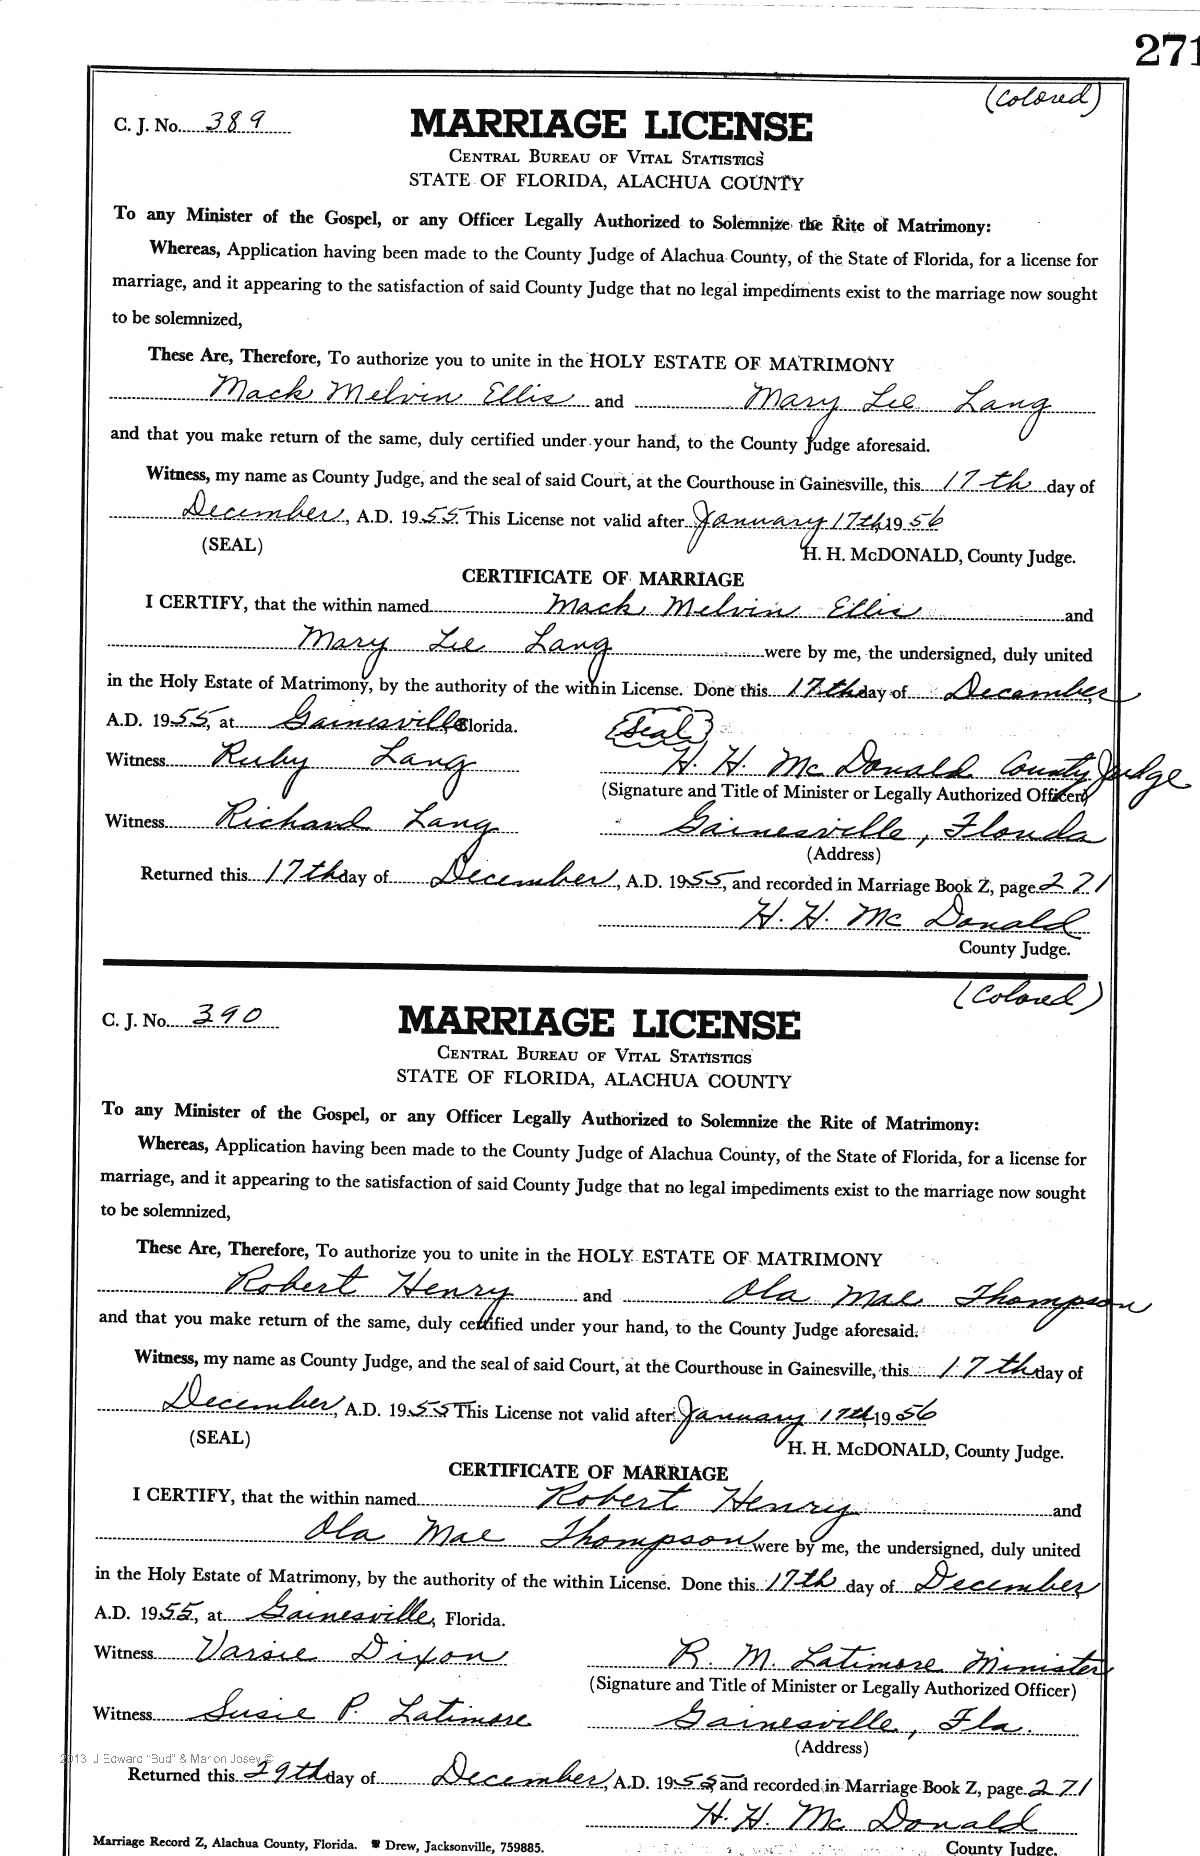 271
(Colored)
C. J. No. 389
MARRIAGE LICENSE
CENTRAL BUREAU OF VITAL STATISTICS
STATE OF FLORIDA, ALACHUA COUNTY
To any Minister of the Gospel, or any Officer Legally Authorized to Solemnize the Rite of Matrimony:
Whereas, Application having been made to the County Judge of Alachua County, of the State of Florida, for a license for
marriage, and it appearing to the satisfaction of said County Judge that no legal impediments exist to the marriage now sought
to be solemnized,
These Are, Therefore, To authorize you to unite in the HOLY ESTATE OF MATRIMONY
Mack Melvin Ellis and Mary Lee Lang
and that you make return of the same, duly certified under your hand, to the County Judge aforesaid.
Witness, my name as County Judge, and the seal of said Court, at the Courthouse in Gainesville, this 17th day of
December, A.D. 1955. This License not valid after January 17th, 1956
(SEAL) H. H. McDONALD, County Judge.
CERTIFICATE OF MARRIAGE
I CERTIFY, that the within named Mack Melvin Ellis and
Mary Lee Lang were by me, the undersigned, duly united
in the Holy Estate of Matrimony, by the authority of the within License. Done this 17th day of December,
A.D. 1955, at Gainesville, Florida. (Seal)
Witness Ruby Lang H. H. McDonald County Judge
(Signature and Title of Minister or Legally Authorized Officer)
Witness Richard Lang Gainesville, Florida
(Address)
Returned this 17th day of December, A.D. 1955, and recorded in Marriage Book Z, page 271
H. H. McDonald
County Judge.
(Colored)
C. J. No. 390
MARRIAGE LICENSE
CENTRAL BUREAU OF VITAL STATISTICS
STATE OF FLORIDA, ALACHUA COUNTY
To any Minister of the Gospel, or any Officer Legally Authorized to Solemnize the Rite of Matrimony:
Whereas, Application having been made to the County Judge of Alachua County, of the State of Florida, for a license for
marriage, and it appearing to the satisfaction of said County Judge that no legal impediments exist to the marriage now sought
to be solemnized,
These Are, Therefore, To authorize you to unite in the HOLY ESTATE OF MATRIMONY
Robert Henry and Ola Mae Thompson
and that you make return of the same, duly certified under your hand, to the County Judge aforesaid.
Witness, my name as County Judge, and the seal of said Court, at the Courthouse in Gainesville, this 17th day of
December, A.D. 1955 This License not valid after January 17th, 1956
(SEAL) H. H. McDONALD, County Judge.
CERTIFICATE OF MARRIAGE
I CERTIFY, that the within named Robert Henry and
Ola Mae Thompson were by me, the undersigned, duly united
in the Holy Estate of Matrimony, by the authority of the within License. Done this 17th day of December,
A.D. 1955, at Gainesville, Florida.
Witness Varsie Dixon R. M. Latimore Minister
(Signature and Title of Minister or Legally Authorized Officer)
Witness Susie P. Latimore Gainesville, Fla.
(Address)
2013 J Edward "Bud" & Marion Josey ©
Returned this 29th day of December, A.D. 1955, and recorded in Marriage Book Z, page 271
H. H. McDonald
Marriage Record Z, Alachua County, Florida. Drew, Jacksonville, 759885. County Judge.